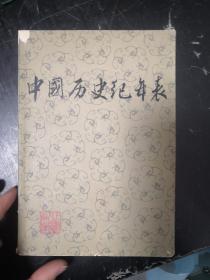 中國历史纪年表